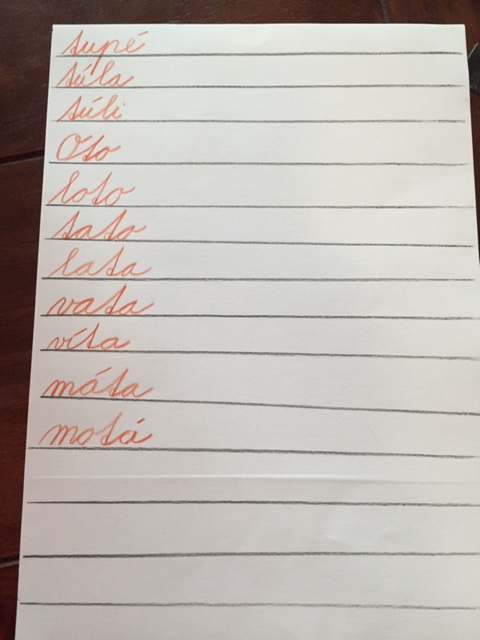 tupé
túla
túli
Oto
loto
tato
lata
vata
víta
máta
motá